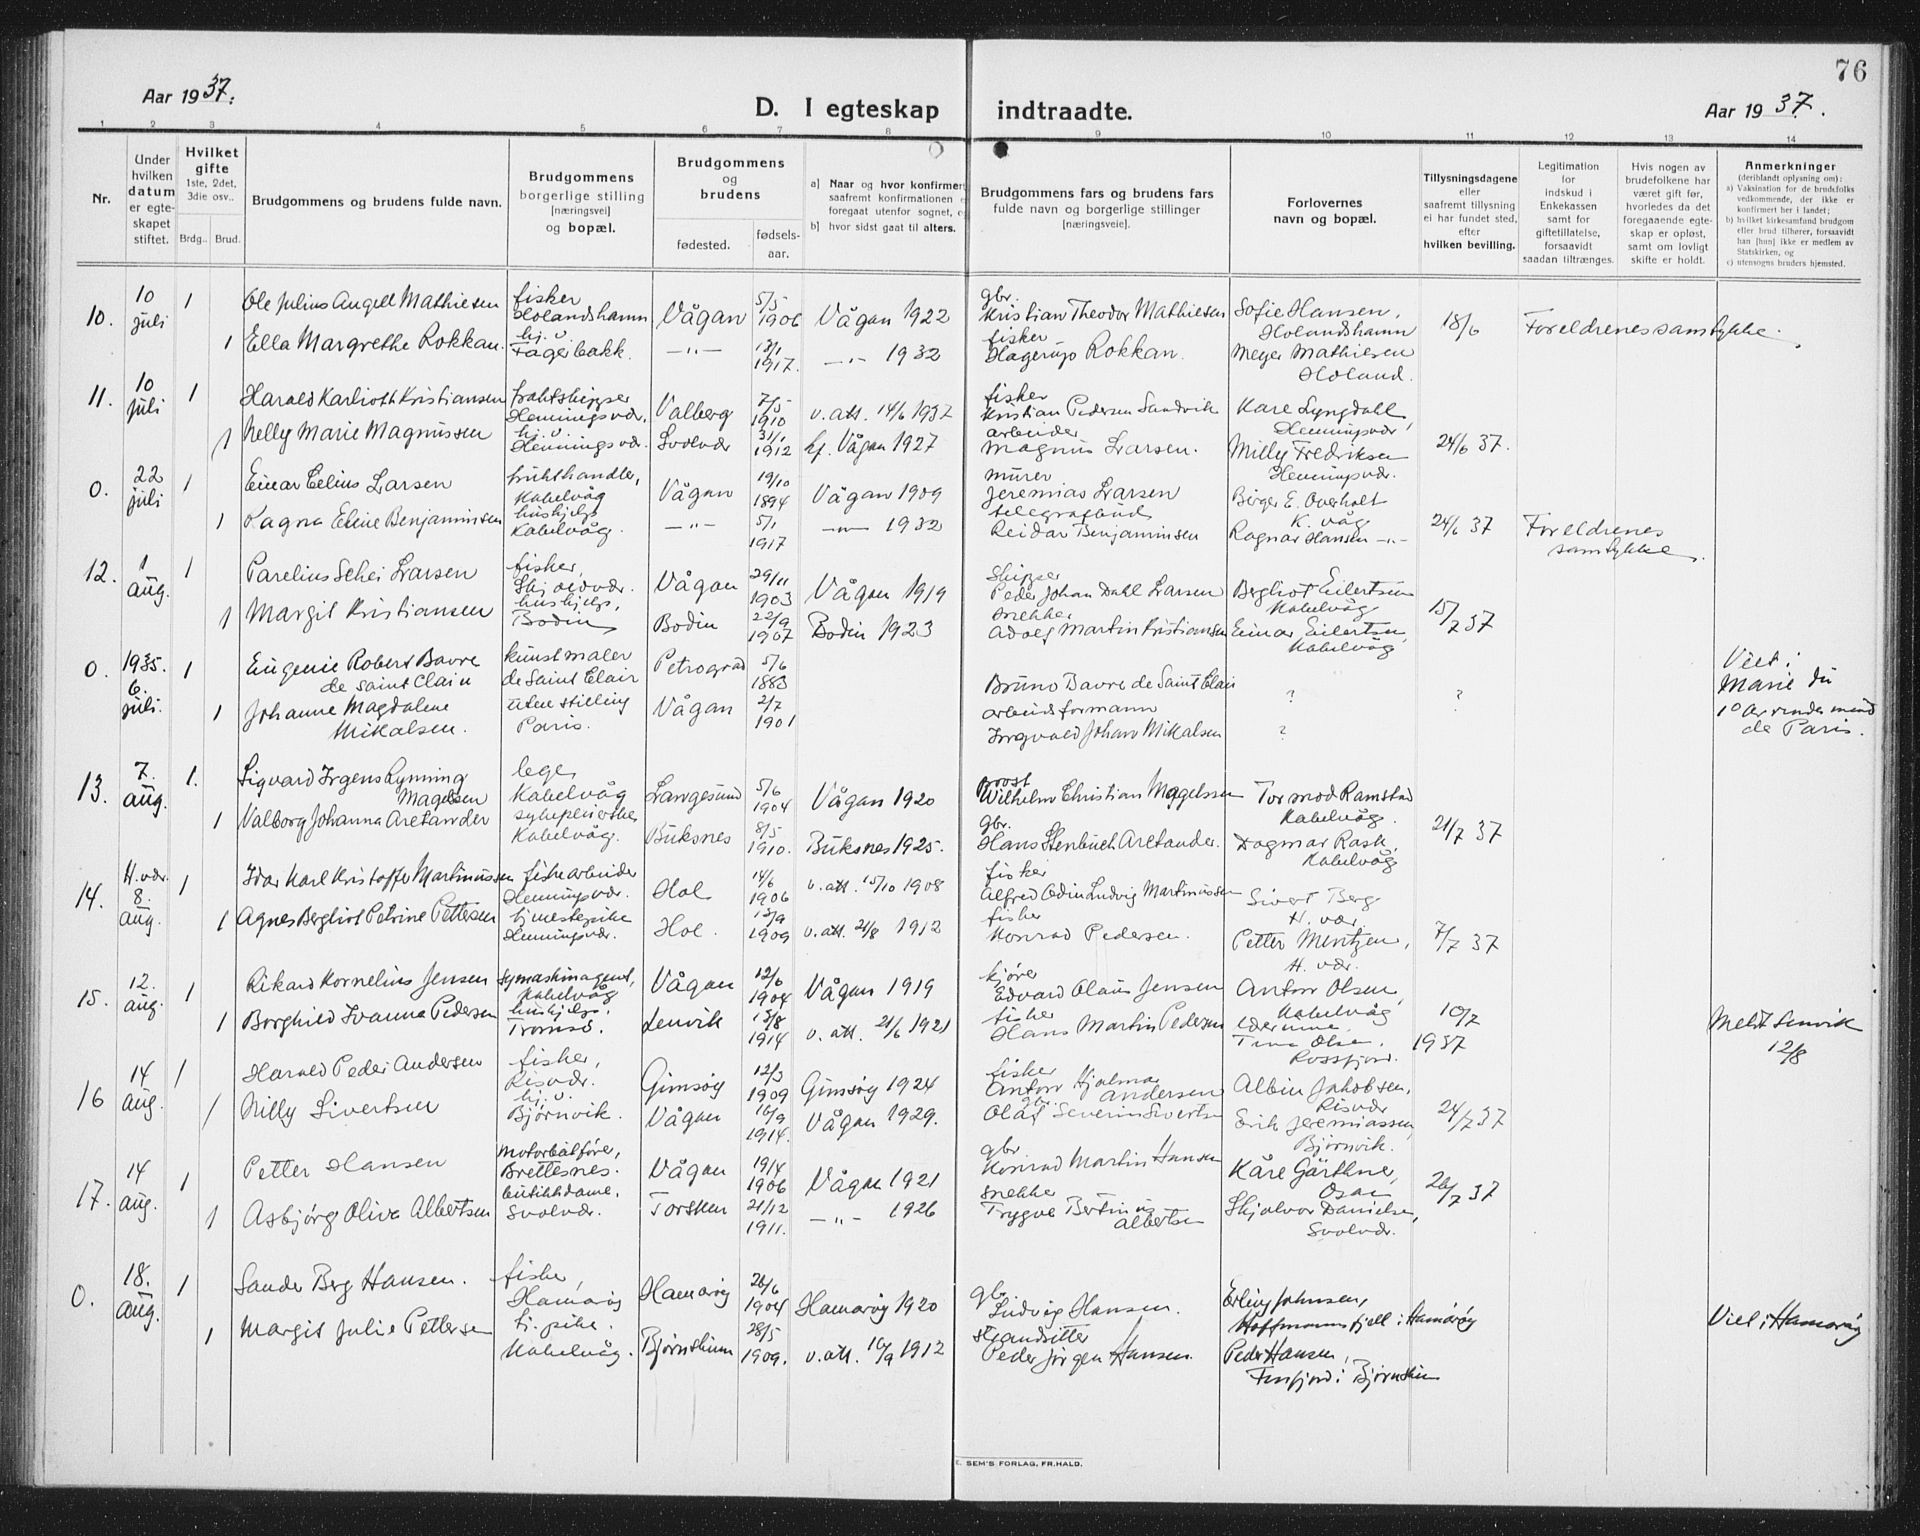 76
Aar 1937.
D. I egteskap indtraadte.
Aar 1937.
1 2 3 4 5 6 7 8 9 10 11 12 13 14
Nr.
Under hvilken datum er egteskapet stiftet.
Hvilket gifte
1ste, 2det, 3die osv..
Brdg.. Brud.
Brudgommens og brudens fulde navn.
Brudgommens borgerlige stilling [næringsvei] og bopæl.
Brudgommens og brudens
fødested. fødselsaar.
a] Naar og hvor konfirmert
saafremt konfirmationen e
foregaat utenfor sognet, e
b] hvor sidst gaat til alters.
Brudgommens fars og brudens fars
fulde navn og borgerlige stillinger
[næringsveie].
Forlovernes navn og bopæl.
Tillysningsdagene
eller
saafremt tillysning
ei har fundet sted,
efter
hvilken bevilling.
Legitimation
for
indskud i
Enkekassen
samt for
giftetillatelse,
forsaavidt
saadan tiltrænges.
Hvis nogen av
brudefolkene har
været gift før,
hvorledes da det
foregaaende egte-
skap er opløst,
samt om lovligt
skifte er holdt.
Anmerkninger
(deriblandt oplysning om):
a) Vaksination for de brudefolks
vedkommende, der ikke er
konfirmert her i landet;
b) hvilket kirkesamfund brudgom
eller brud tilhører, forsaavidt
han [hun] ikke er medlem av
Statskirken, og
c) utensogns bruders hjemsted.
10. 10 juli 1 Ole Julius Angell Mathiesen fisker Holandshamn Vågan 5/5 1906 Vågan 1922 gbr. Kristian Theodor Mathiesen Sofie Hansen, Holandshamn 18/6 Foreldrenes samtykke.
1 Ella Margrethe Rokkan. hj. v. Fagerbakk. —"— 13/1 1917. —"— 1932 fisker Hagerup Rokkan. Meyer Mathiesen Holand.
11. 10 juli 1 Harald Karlioth Kristiansen fraktskipper Henningsvær, Valberg 7/5 1910 v. att. 14/6 1937 fisker Kristian Pedersen Sandvik Kåre Lyngdahl, Henningsvær 24/6 37.
1 Nelly Marie Magnussen hj. v. Henningsvær. Svolvær 31/1 1912 kf. Vågan 1927 arbeider Magnus Larsen. Milly Fredriksen Henningsvær.
0. 22 juli 1 Einar Celius Larsen frukthandler, Kabelvåg Vågan 19/10 1894 Vågan 1909 murer Jeremias Larsen Birger E. Overholt K. våg 24/6 37 Foreldrenes samtykke.
1 Ragna Eline Benjaminsen hushjelp Kabelvåg. —"— 5/1 1917 —"— 1932 telegrafbud Reidar Benjaminsen Ragnar Hansen —"—
12. 1 aug. 1 Parelius Schei Larsen fisker, Skjoldvær. Vågan 29/11 1903 Vågan 1919 skipper Peder Johan Dahl Larsen Bergliot Eilertsen Kabelvåg 15/7 37
1 Margit Kristiansen hushjelp, Bodin Bodin 22/9 1907 Bodin 1923 snekker Adolf Martin Kristiansen Einar Eilertsen, Kabelvåg
0. 1935. 6. juli. 1 Eugenie Robert Bavre de Saint Clair kunstmaler de Saint Clair Petrograd 5/6 1883 Bruno Bavre de Saint Clair ? ? Viet i Marie du 10 Arrondismend de Paris.
1 Johanne Magdalene Mikalsen. uten stilling Paris. Vågan 2/7 1901 arbeidsformann Ingvald Johan Mikalsen ?
13. 7. aug. 1. Sigvard Irgens Lynning Magelssen lege, Kabelvåg Langesund 5/6 1904 Vågan 1920 prost Wilhelm Christian Magelssen Tormod Ramstad Kabelvåg. 21/7 37
1 Valborg Johanna Aretander sykepleierske Kabelvåg. Buksnes 8/5 1910. Buksnes 1925. gbr. Hans Stenbuch Aretander. Dagmar Rask, Kabelvåg
14. H. vær. 8. aug. 1 Idar Karl Kristoffer Martinussen fiskearbeider Henningsvær. Hol 14/6 1906 v. att. 15/10 1908 fisker Alfred Odin Ludvig Martinussen Sivert Berg H. vær 7/7 37
1 Agnes Bergliot Petrine Pettersen tjenestepike Henningsvær. Hol. 13/9 1909 v. att. 21/8 1912 fisker Konrad Pedersen. Petter Mentzen, H. vær.
15. 12. aug. 1 Rikard Kornelius Jensen symaskinagent, Kabelvåg Vågan 12/6 1904 Vågan 1919 kjører Edvard Olaus Jensen Anton Olsen, Kabelvåg 10/7 1937 Meldt Lenvik 12/8
1 Borghild Ivanna Pedersen hushjelp. Tromsö. Lenvik 13/8 1914 v. att. 21/6 1921 fisker Hans Martin Pedersen lærerinne Tina Olsen, Rossfjord.
16 14 aug. 1 Harald Peder Andersen fisker, Risvær. Gimsøy 12/3 1909 Gimsøy 1924 fisker Anton Hjalmar Andersen Albin Jakobsen, Risvær 24/7 37
1 Milly Sivertsen hj. v. Bjørnvik. Vågan 10/9 1914. Vågan 1929. gbr. Olaf Severin Sivertsen Erik Jeremiassen, Bjørnvik.
17. 14 aug. 1 Petter Hansen motorbåtfører, Brettesnes. Vågan 19/4 1906 Vågan 1921 gbr Konrad Martin Hansen Kåre Gärthner, Osan 26/7 37
1 Asbjørg Olive Albertsen butikkdame, Svolvær. Torsken 21/12 1911. —"— 1926 snekker Trygve Bertinius Albertsen Skjalvor Danielsen, Svolvær.
0. 18. aug. 1 Sander Berg Hansen. fisker, Hamarøy Hamarøy 26/6 1904 Hamarøy 1920 gbr Ludvig Hansen. Erling Johnsen, Hoffmannsfjell i Hamarøy Viet i Hamarøy
1 Margit Julie Pettersen tj. pike. Kabelvåg. Bjørnskinn 28/5 1909. v. att. 10/9 1912 strandsitter Peder Jörgen Hansen. Peder Hansen, i Bjørnskinn
E. SEM'S FORLAG, FR.HALD.